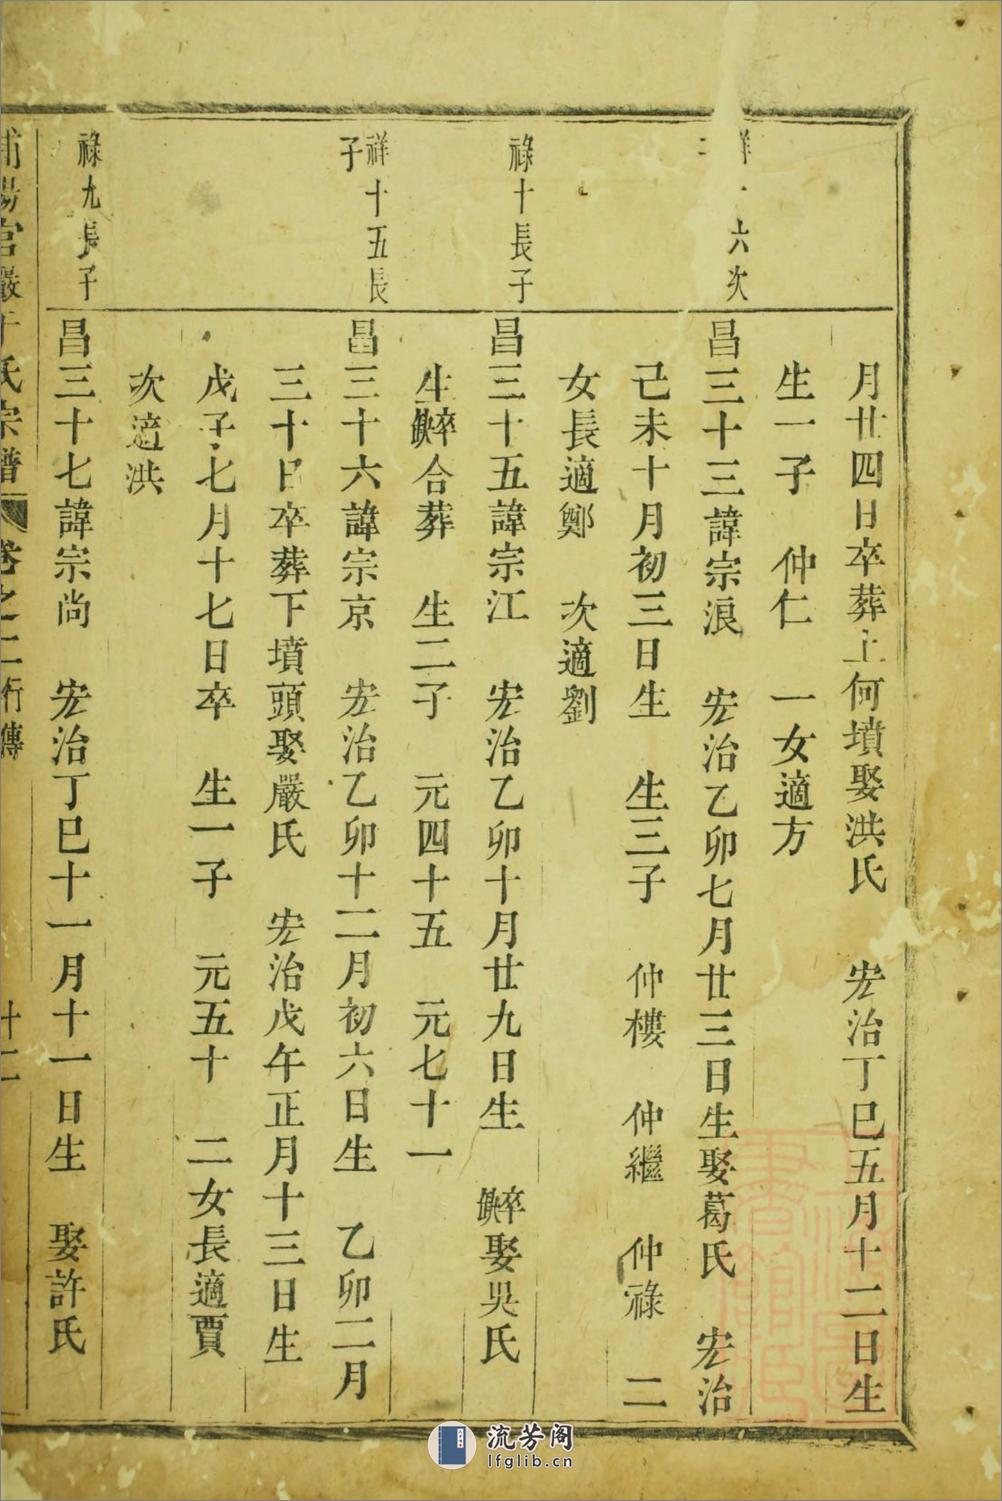 月廿四日卒葬上何墳娶洪氏　宏治丁巳五月十二日生
生一子　仲仁　一女適方
六次
昌三十三諱宗浪　宏治乙卯七月廿三日生娶葛氏　宏治
己未十月初三日生　生三子　仲樓　仲繼　仲祿　二
女長適鄭　次適劉
祿十長子
昌三十五諱宗江　宏治乙卯十月廿九日生　卒缺娶吳氏
生卒缺合葬　生二子　元四十五　元七十一
祥十五長子
昌三十六諱宗京　宏治乙卯十二月初六日生　乙卯二月
三十日卒葬下墳頭娶嚴氏　宏治戊午正月十三日生
戊子七月十七日卒　生一子　元五十　二女長適賈
次適洪
祿九長子
昌三十七諱宗尚　宏治丁巳十一月十一日生　娶許氏
氏宗譜　卷之二行傳　十二
流芳阁
lfglib.cn